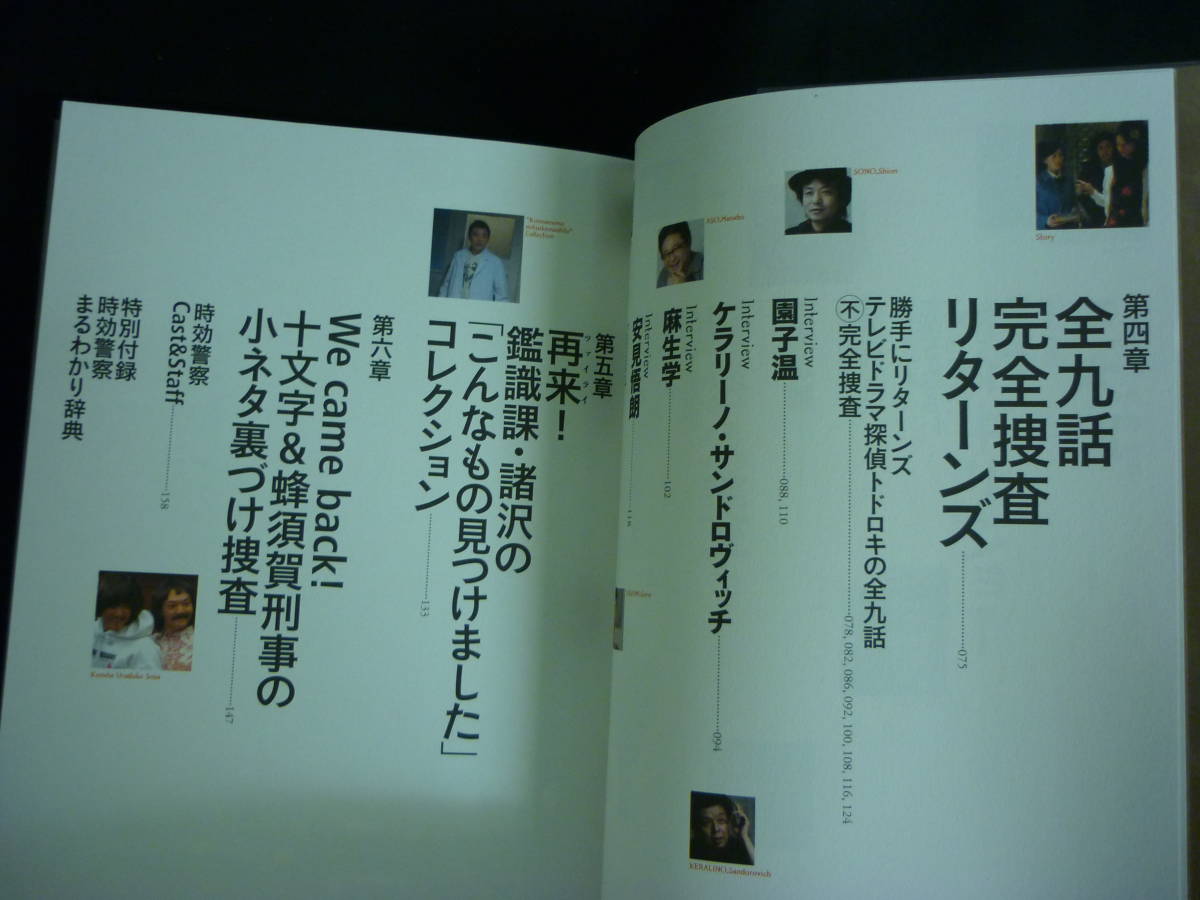 第四章
全九話
完全捜査
リターンズ……075
Story
勝手にリターンズ
テレビドラマ探偵トドロキの全九話
㊁完全捜査……078, 082, 086, 092, 100, 108, 116, 124
SONO,Shion
Interview
園子温……088, 110
Interview
ケラリーノ・サンドロヴィッチ……094
KERALINO,Sandorovich
ASO,Manabu
Interview
麻生学……102
Interview
安見悟朗……118
第五章
再来!
ファイナイ
鑑識課・諸沢の
「こんなもの見つけました」
コレクション……133
Collection
第六章
We came back!
十文字&蜂須賀刑事の
小ネタ裏づけ捜査……147
Koneta Urazuke Sosa
時効警察
Cast&Staff……158
特別付録
時効警察
まるわかり辞典